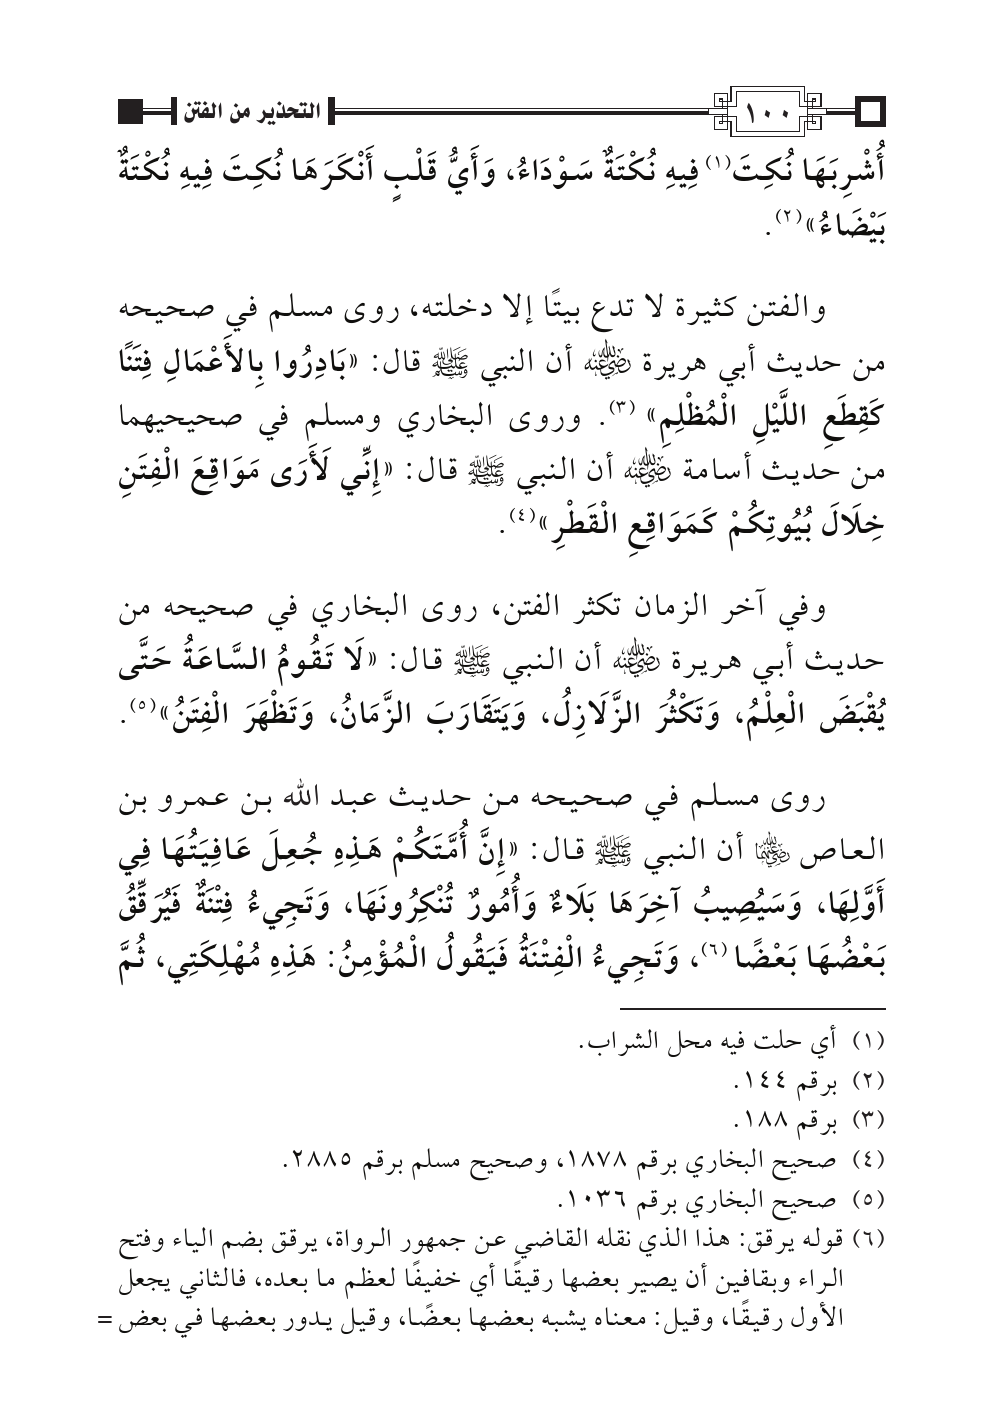 ١٠٠ التحذير من الفتن
أُشْرِبَهَا نُكِتَ(١) فِيهِ نُكْتَةٌ سَوْدَاءُ، وَأَيُّ قَلْبٍ أَنْكَرَهَا نُكِتَ فِيهِ نُكْتَةٌ
بَيْضَاءُ»(٢).
والفتن كثيرة لا تدع بيتًا إلا دخلته، روى مسلم في صحيحه
من حديث أبي هريرة رضي الله عنه أن النبي ﷺ قال: «بَادِرُوا بِالأَعْمَالِ فِتَنًا
كَقِطَعِ اللَّيْلِ الْمُظْلِمِ» (٣). وروى البخاري ومسلم في صحيحيهما
من حديث أسامة رضي الله عنه أن النبي ﷺ قال: «إِنِّي لَأَرَى مَوَاقِعَ الْفِتَنِ
خِلَالَ بُيُوتِكُمْ كَمَوَاقِعِ الْقَطْرِ»(٤).
وفي آخر الزمان تكثر الفتن، روى البخاري في صحيحه من
حديث أبي هريرة رضي الله عنه أن النبي ﷺ قال: «لَا تَقُومُ السَّاعَةُ حَتَّى
يُقْبَضَ الْعِلْمُ، وَتَكْثُرَ الزَّلَازِلُ، وَيَتَقَارَبَ الزَّمَانُ، وَتَظْهَرَ الْفِتَنُ»(٥).
روى مسلم في صحيحه من حديث عبد الله بن عمرو بن
العاص رضي الله عنهما أن النبي ﷺ قال: «إِنَّ أُمَّتَكُمْ هَذِهِ جُعِلَ عَافِيَتُهَا فِي
أَوَّلِهَا، وَسَيُصِيبُ آخِرَهَا بَلَاءٌ وَأُمُورٌ تُنْكِرُونَهَا، وَتَجِيءُ فِتْنَةٌ فَيُرَقِّقُ
بَعْضُهَا بَعْضًا (٦)، وَتَجِيءُ الْفِتْنَةُ فَيَقُولُ الْمُؤْمِنُ: هَذِهِ مُهْلِكَتِي، ثُمَّ
(١) أي حلت فيه محل الشراب.
(٢) برقم ١٤٤.
(٣) برقم ١٨٨.
(٤) صحيح البخاري برقم ١٨٧٨، وصحيح مسلم برقم ٢٨٨٥.
(٥) صحيح البخاري برقم ١٠٣٦.
(٦) قوله يرقق: هذا الذي نقله القاضي عن جمهور الرواة، يرقق بضم الياء وفتح
الراء وبقافين أن يصير بعضها رقيقًا أي خفيفًا لعظم ما بعده، فالثاني يجعل
الأول رقيقًا، وقيل: معناه يشبه بعضها بعضًا، وقيل يدور بعضها في بعض =